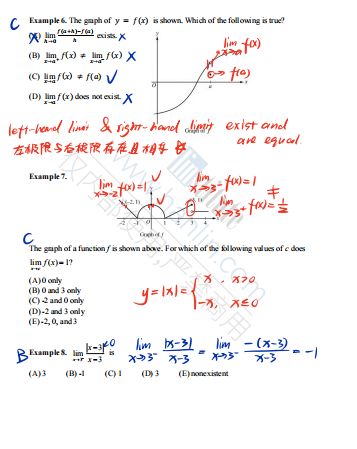 C Example 6. The graph of y = f(x) is shown. Which of the following is true?
(A) lim h→0 f(a+h)-f(a) / h exists. X
(B) lim x→a+ f(x) ≠ lim x→a- f(x) X
(C) lim x→a f(x) ≠ f(a) ✓
(D) lim x→a f(x) does not exist. X
lim x→a f(x)
f(a)
y
O
a
x
Graph of f
left-hand limit & right-hand limit exist and are equal
左极限与右极限存在且相等
Example 7.
lim x→-2 f(x)=1 ✓
lim x→3- f(x)=1
≠
lim x→3+ f(x)=1/2
(-2, 1)
-2 -1 O 1 2 3 4
Graph of f
C
The graph of a function f is shown above. For which of the following values of c does
lim x→c f(x)=1?
(A) 0 only
(B) 0 and 3 only
(C) -2 and 0 only
(D) -2 and 3 only
(E) -2, 0, and 3
y=|x|= { x, x>0
-x, x≤0
B Example 8. lim x→3- |x-3| / x-3 is
<0
lim x→3- |x-3| / x-3 = lim x→3- -(x-3) / x-3 = -1
(A) 3 (B) -1 (C) 1 (D) 3 (E) nonexistent